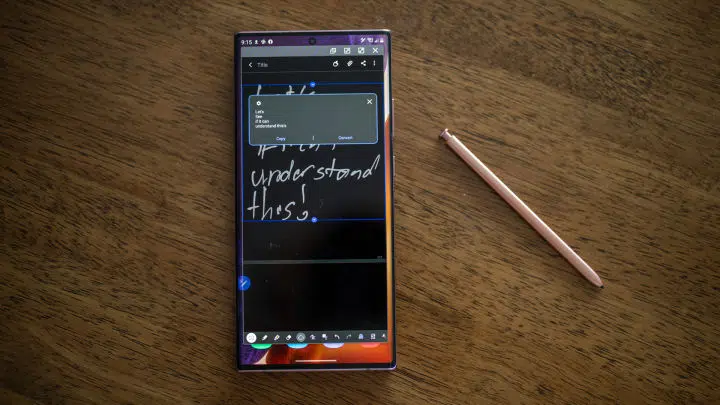 9:15
Title
Let's
See
if it can
understand this's
Copy | Convert
understand
this!